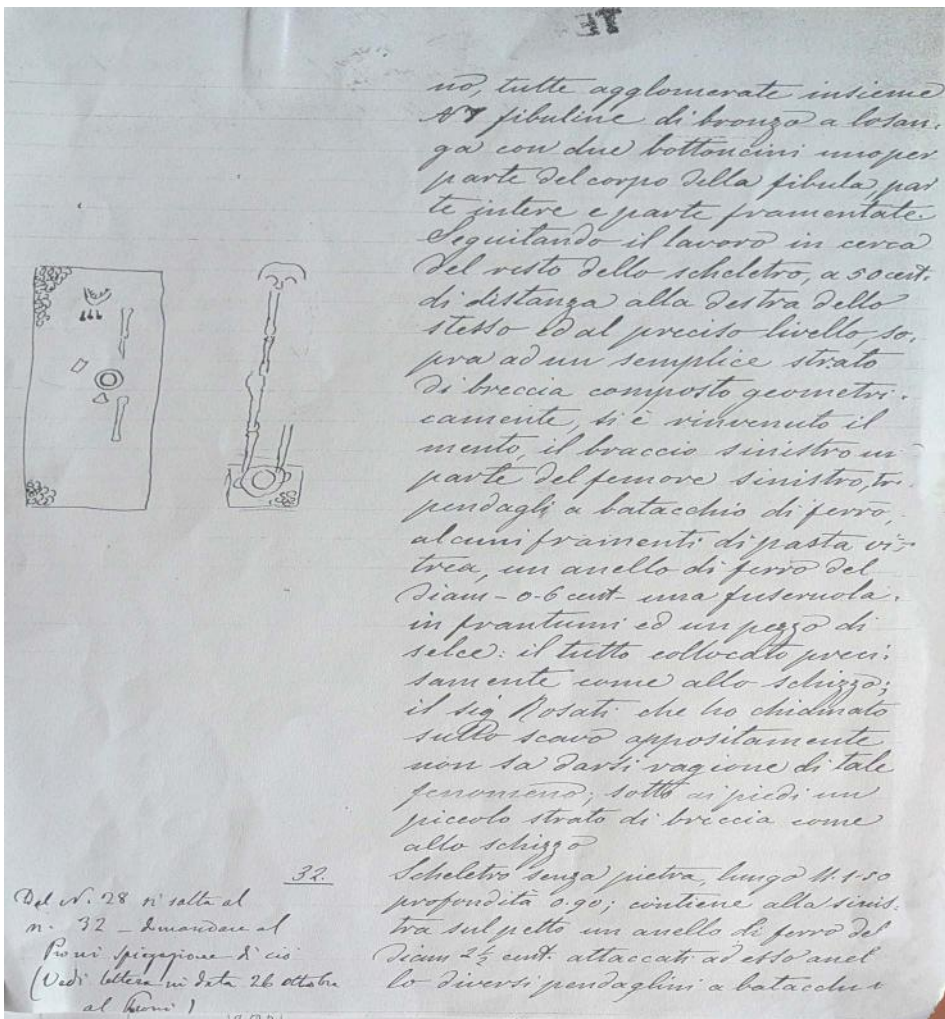 no, tutte agglomerate insieme
N 7 fibuline di bronzo a losan:
ga con due bottoncini uno per
parte del corpo della fibula, par
te intere e parte framentate.
Seguitando il lavoro in cerca
del resto dello scheletro, a 50 cent.
di distanza alla destra dello
stesso ed al preciso livello, so.
pra ad un semplice strato
di breccia composto geometri.
camente, si è rinvenuto il
mento, il braccio sinistro
parte del femore sinistro, tre
pendagli a batacchio di ferro,
alcuni framenti di pasta vi-
trea, un anello di ferro del
diam - 0-6 cent - una fuseruola.
in frantumi ed un pezzo di
selce: il tutto collocato preci.
samente come allo schizzo;
il sig Rosati che ho chiamato
sullo scavo appositamente
non sa darsi ragione di tale
fenomeno; sotto ai piedi un
piccolo strato di breccia come
allo schizzo
32.
Scheletro senza pietra, lungo M. 1.50
profondità 0.90; contiene alla sinis.
tra sul petto un anello di ferro del
diam 2½ cent. attaccati ad esso anel
lo diversi pendaglini a batacchi
Dal N. 28 si salta al
n. 32 - domandare al
spiegazione di ciò
(Vedi lettera in data 26 ottobre
al )